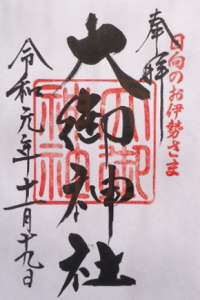 奉拝
日向のお伊勢さま
大御神社
大御神社
令和元年十一月十九日